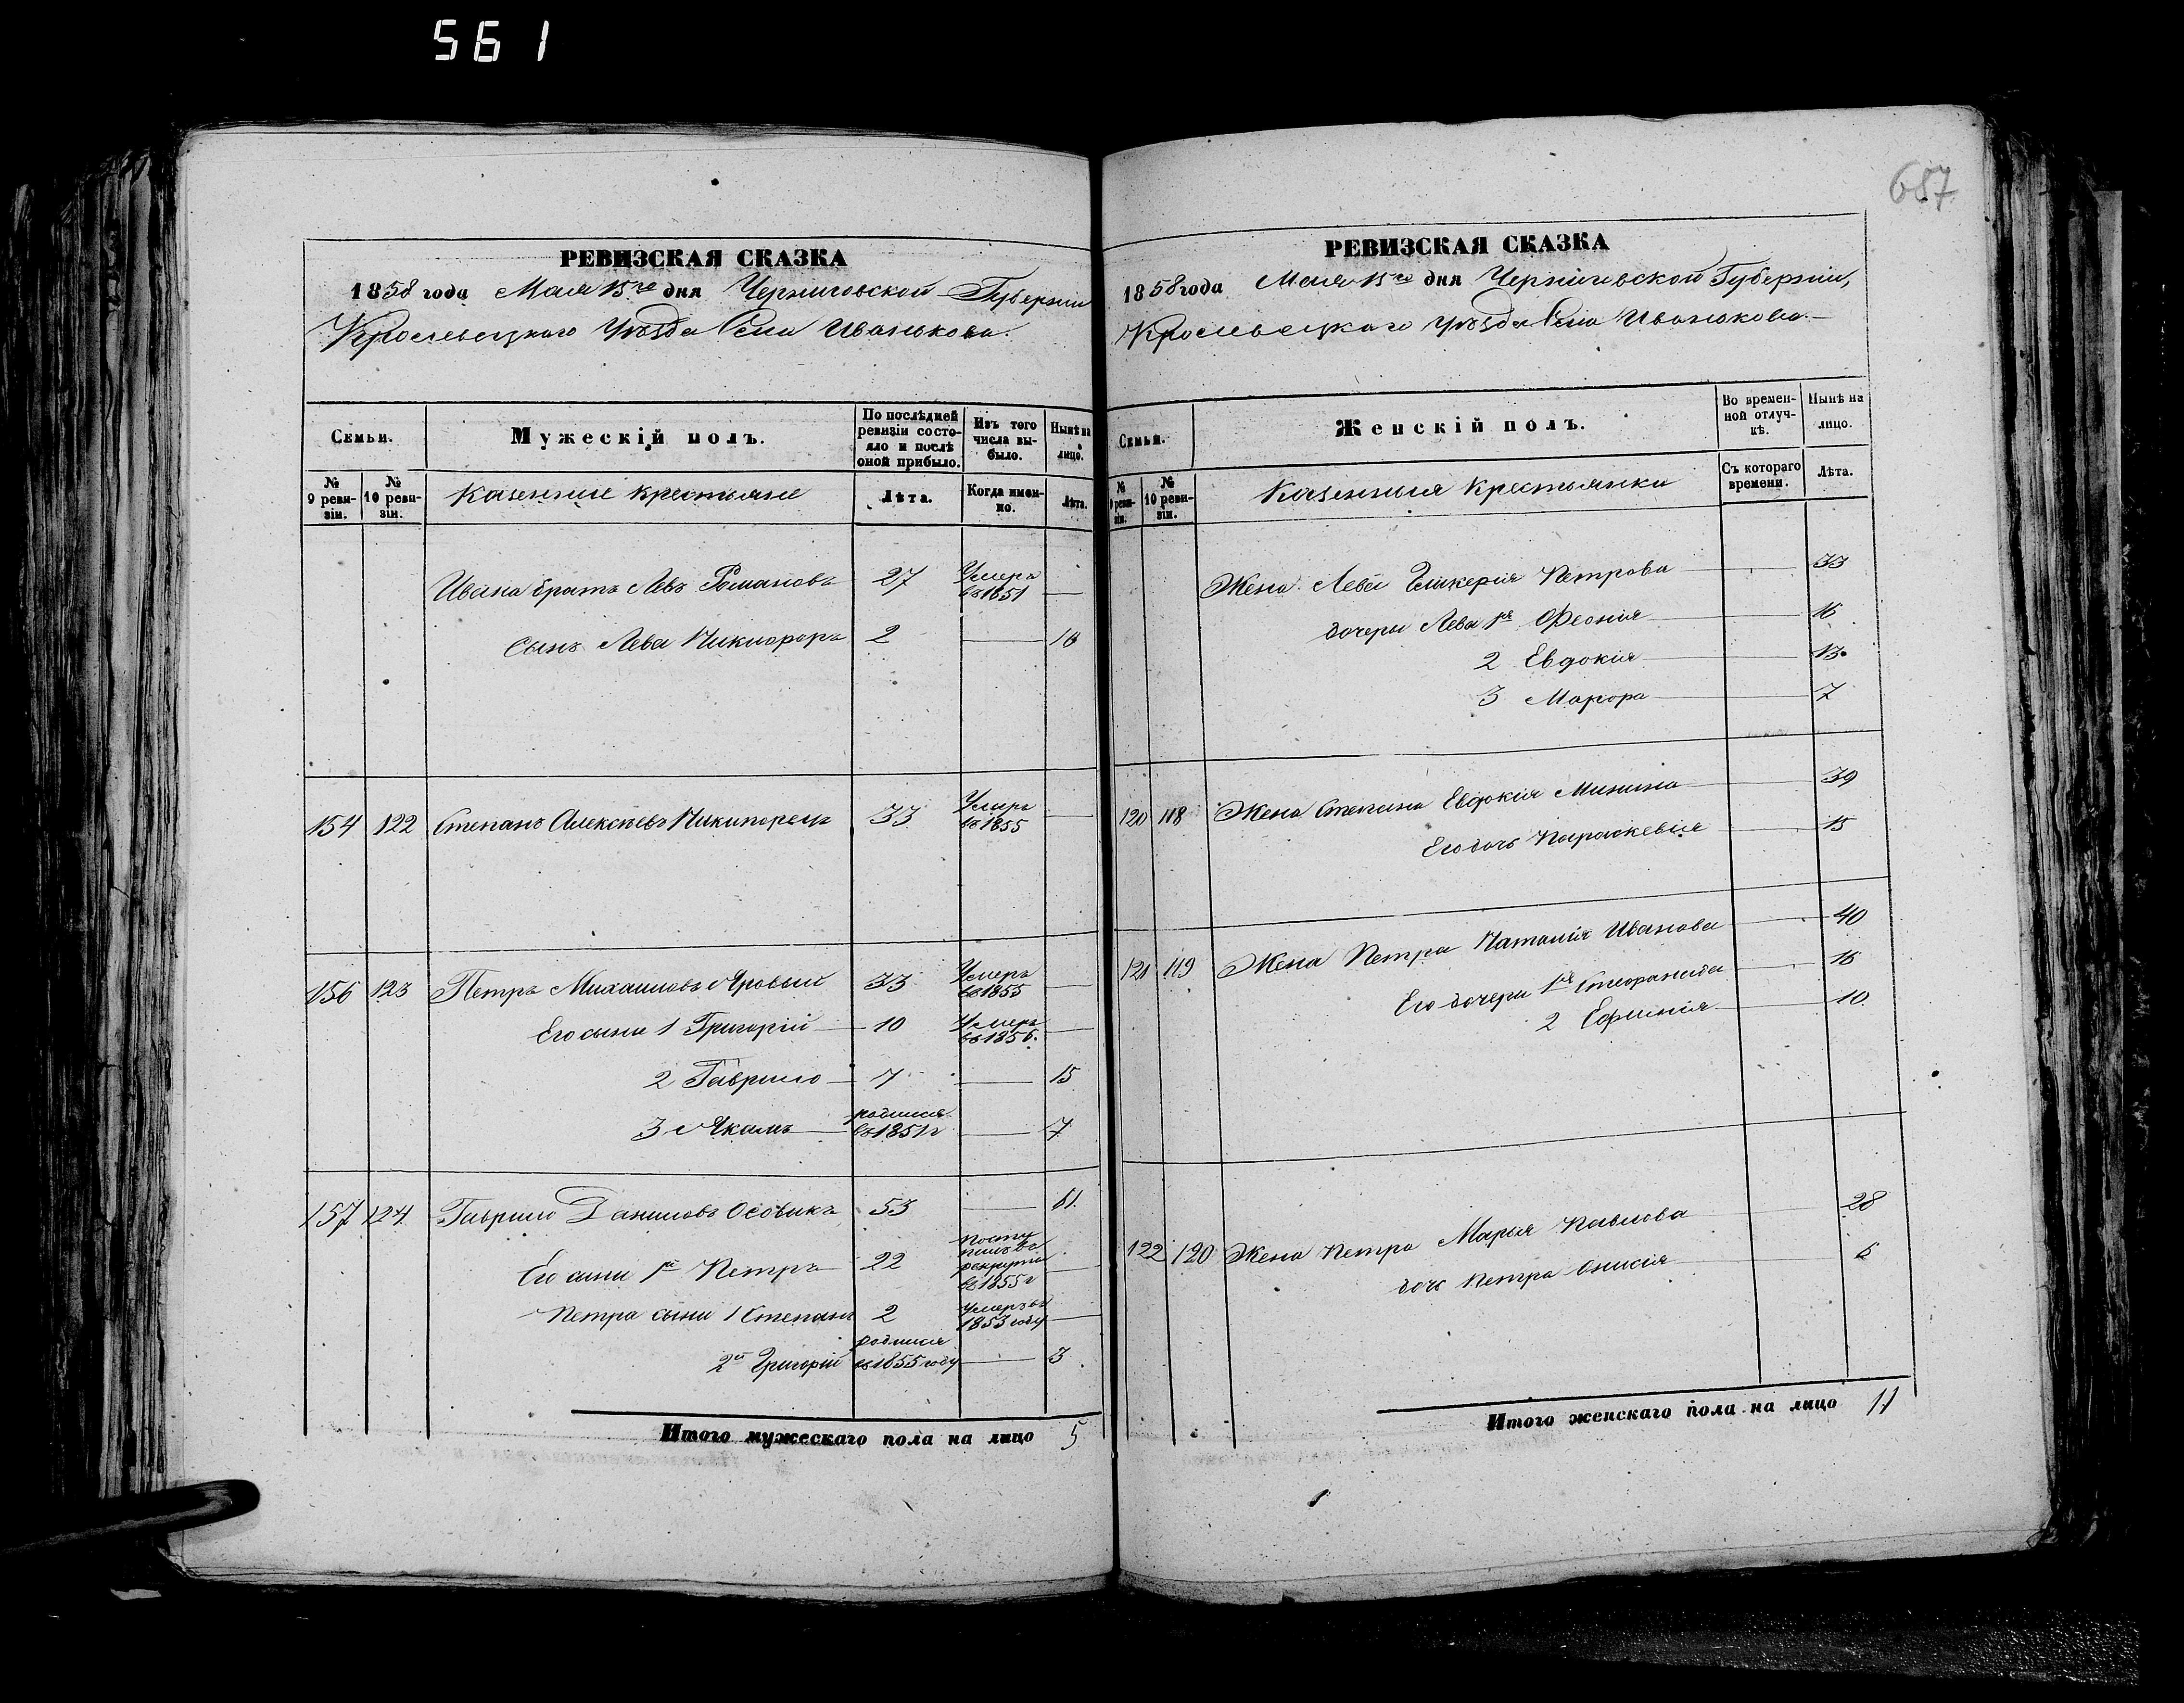 561
687
РЕВИЗСКАЯ СКАЗКА
1858 года Мая 15го дня Черниговской Губернии
Кролевецкаго Уѣзда Села Иванькова.
Семьи.
Мужескій полъ.
По послѣдней ревизіи состояло и послѣ оной прибыло.
Изъ того числа выбыло.
Нынѣ на лицо.
№ 9 ревизіи.
№ 10 ревизіи.
Казенные крестьяне
Лѣта.
Когда именно.
Лѣта.
Ивана братъ Левъ Романовъ 27 Умеръ въ 1851 —
Сынъ Лева Никифоръ 2 — 10
154 122 Степанъ Алексѣевъ Никипорецъ 33 Умеръ въ 1855 —
156 123 Петръ Михаиловъ Яровый 33 Умеръ въ 1855 —
Его сыны 1 Григорій 10 Умеръ въ 1856. —
2 Гаврило 7 — 15
3 Якимъ родился въ 1851 г — 7
157 124 Гаврило Даниловъ Осовикъ 53 — 61.
Его сыны 1й Петръ 22 поступилъ въ рекруты въ 1855 г —
Петра сыны 1 Степанъ 2 Умеръ въ 1853 году —
2й Григорій родился въ 1855 году — 3
Итого мужескаго пола на лицо 5
РЕВИЗСКАЯ СКАЗКА
1858 года Мая 15го дня Черниговской Губерніи,
Кролевецкаго Уѣзда Села Иванькова.—
Семьи.
Женскій полъ.
Во временной отлучкѣ.
Нынѣ на лицо.
№ 9 ревизіи.
№ 10 ревизіи.
Казенныя Крестьянки
Съ котораго времени.
Лѣта.
Жена Лева Гликерія Петрова — 33
дочери Лева 1я Феонія — 16
2 Евдокія — 13.
3 Марфра — 7
120 118 Жена Степана Евдокія Минина — 39
Его дочь Параскевія — 15
121 119 Жена Петра Наталія Иванова — 40
Его дочери 1я Стефанида — 16
2 Ефимія — 10
122 120 Жена Петра Марья Павлова 28
дочь Петра Онисія 6
Итого женскаго пола на лицо 11